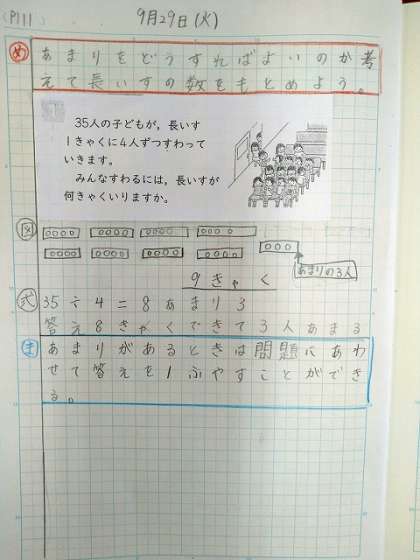 (P111
9月29日(火)
め
あまりをどうすればよいのか考
えて長いすの数をもとめよう。
35人の子どもが，長いす
1きゃくに4人ずつすわって
いきます。
みんなすわるには，長いすが
何きゃくいりますか。
図
あまりの3人
9きゃく
式
35÷4=8あまり3
答え8きゃくできて3人あまる
ま
あまりがあるときは問題にあわ
せて答えを1ふやすことができ
る。